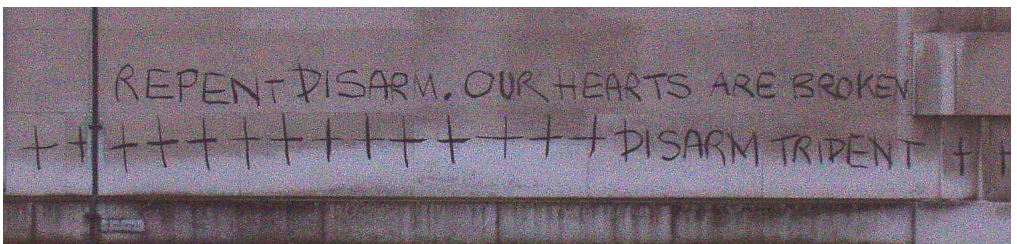 REPENT DISARM. OUR HEARTS ARE BROKEN
DISARM TRIDENT